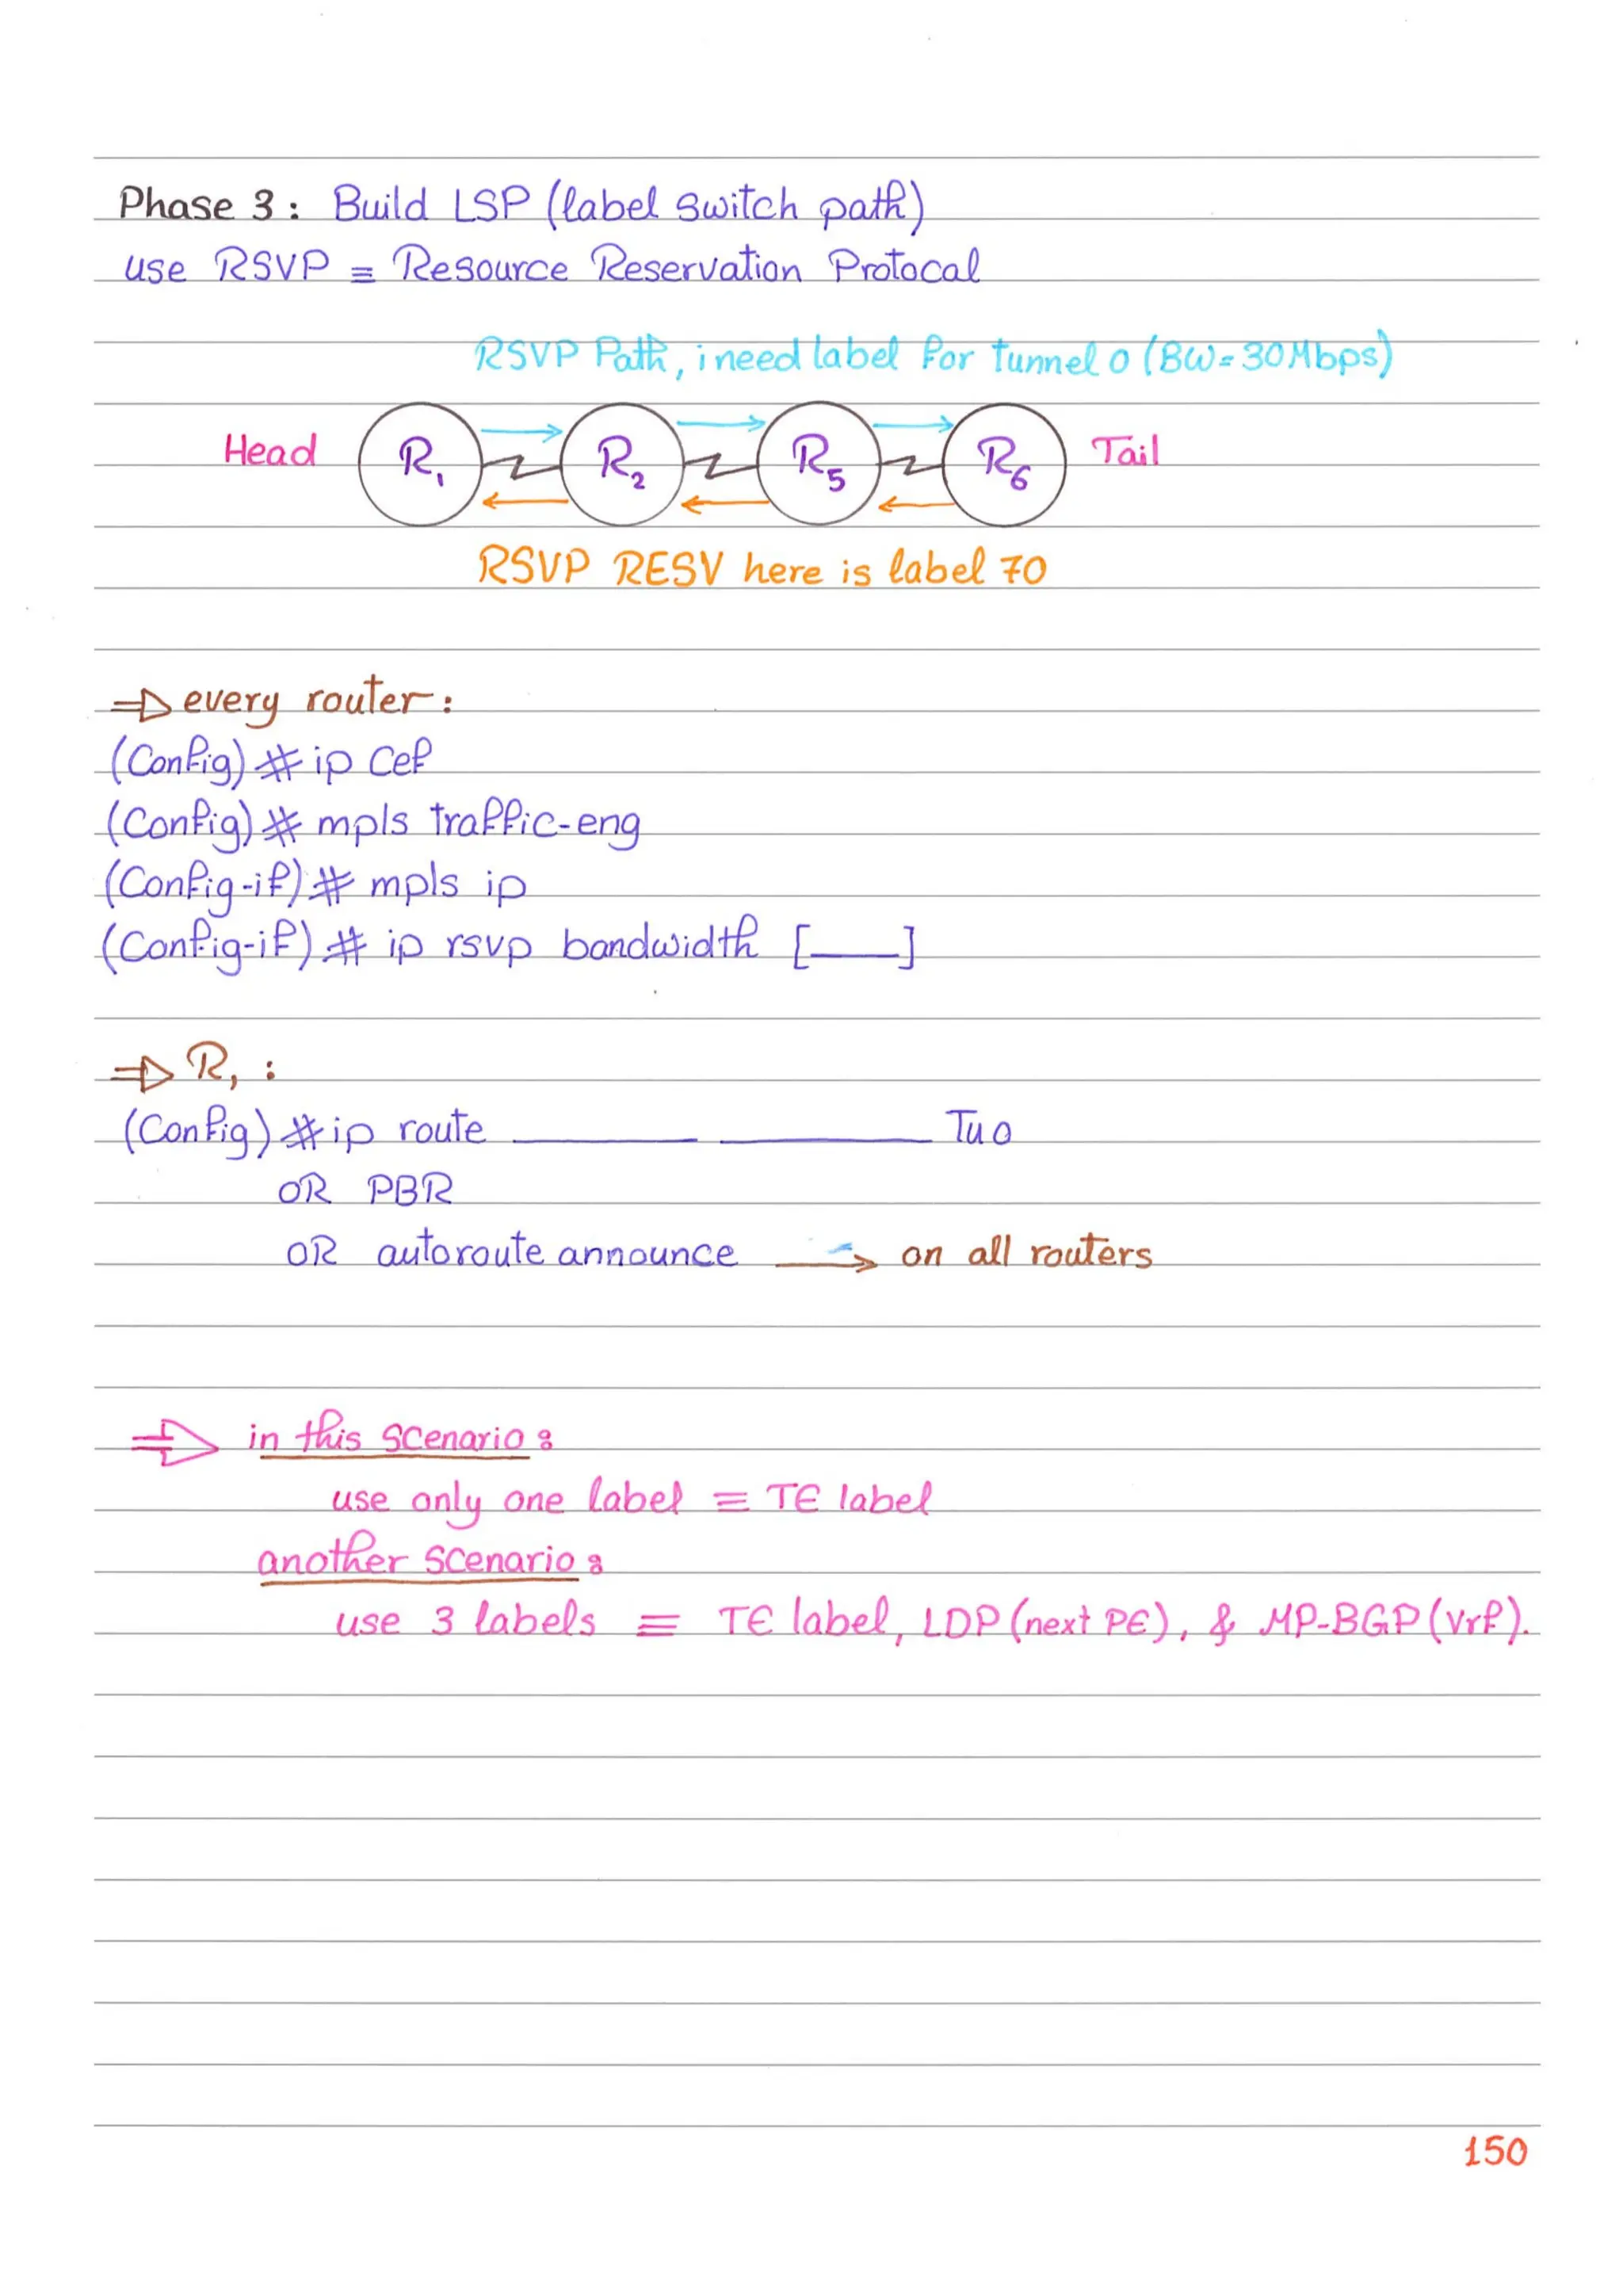 Phase 3: Build LSP (label switch path)
use RSVP ≡ Resource Reservation Protocal
RSVP Path, i need label for tunnel 0 (BW=30Mbps)
Head R1 R2 R5 R6 Tail
RSVP RESV here is label 70
⇒ every router:
(Config)# ip Cef
(Config)# mpls traffic-eng
(Config-if)# mpls ip
(Config-if)# ip rsvp bandwidth [___]
⇒ R1:
(Config)# ip route ______ ______ Tu0
OR PBR
OR autoroute announce → on all routers
⇒ in this scenario:
use only one label ≡ TE label
another scenario:
use 3 labels ≡ TE label, LDP (next PE), & MP-BGP (vrf).
150